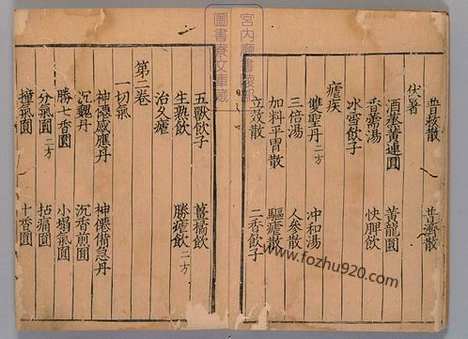 普救散 普濟散
伏暑
酒蒸黄連圓 黄龍圓
香薷湯 快脾飲
冰雪飲子
瘧疾
雙聖丹二方 冲和湯
三倍湯 人參散
加料平胃散 驅瘧散
立效散 二香飲子
五獸飲子
生熟飲 勝瘧飲二方
治久瘧
第二卷
一切氣
神僊感應丹 神僊術急丹
沉魏丹 沉香煎圓
勝七香圓 小塌氣圓
分氣圓二方 拈痛圓
撞氣圓 十香圓
www.fozhu920.com